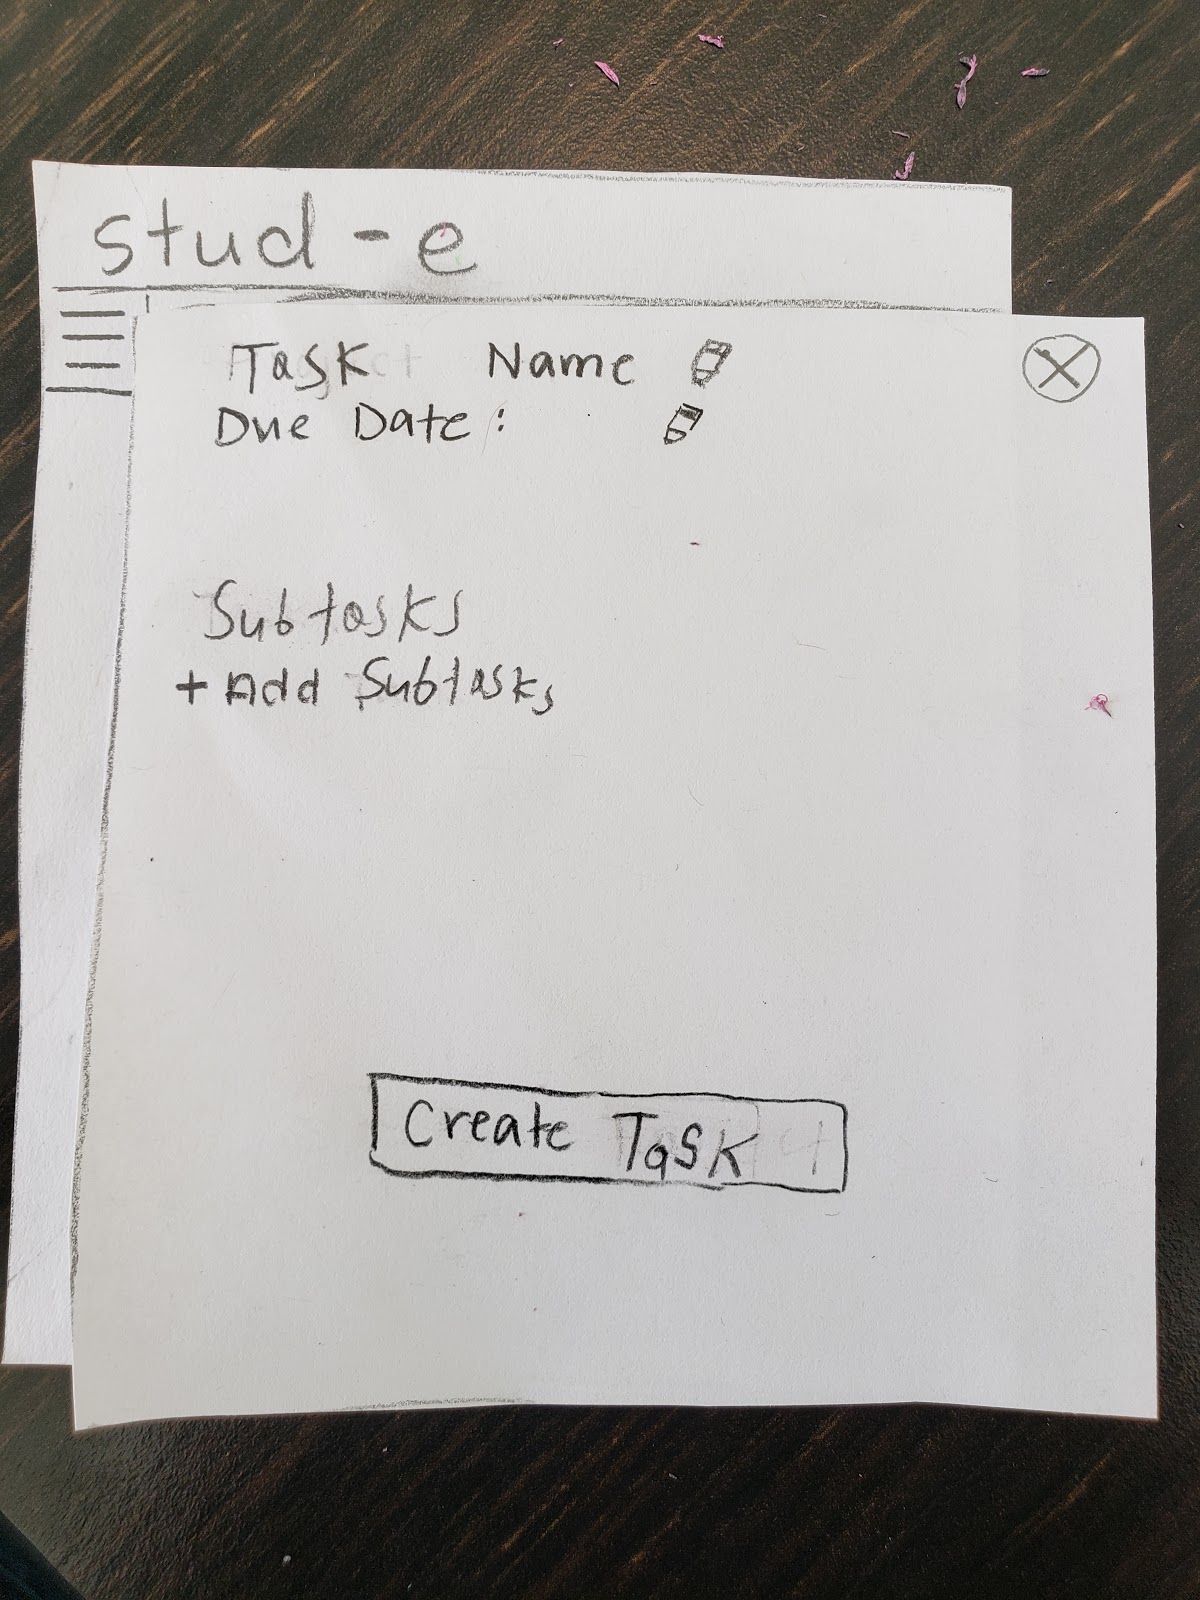 stud-e
Task Name
Due Date:
Subtasks
+ Add Subtasks
Create Task